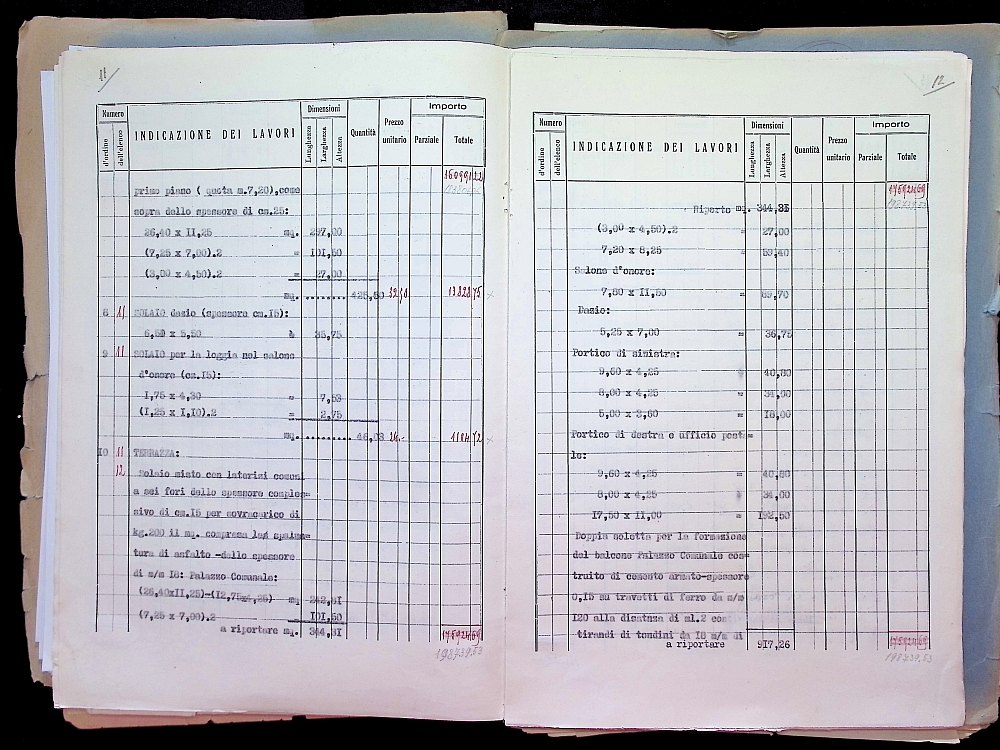 11
Numero
d'ordine
dell'elenco
INDICAZIONE DEI LAVORI
Dimensioni
Lunghezza
Larghezza
Altezza
Quantità
Prezzo
unitario
Importo
Parziale
Totale
primo piano ( quota m.7,20),come
sopra dello spessore di cm.25:
26,40 x II,25 mq. 297,00
(7,25 x 7,00).2 = IOI,50
(3,00 x 4,50).2 = 27,00
mq. ........ 425,50
8 11 SOLAIO dazio (spessore cm.I5):
6,50 x 5,50 35,75
9 11 SOLAIO per la loggia nel salone
d'onore (cm.I5):
I,75 x 4,30 = 7,53
(I,25 x I,IO).2 = 2,75
mq. ......... 46,03 26.- 1184,72
IO 11 TERRAZZA:
12 Solaio misto con laterizi comuni
a sei fori dello spessore comples=
sivo di cm.I5 per sovracarico di
kg.200 il mq. compresa la spalma=
tura di asfalto -dello spessore
di m/m I8: Palazzo Comunale:
(26,40xII,25)-(I2,75x4,25) mq 242,8I
(7,25 x 7,00).2 = IOI,50
a riportare mq. 344,3I
198739,53
12
Numero
d'ordine
dell'elenco
INDICAZIONE DEI LAVORI
Dimensioni
Lunghezza
Larghezza
Altezza
Quantità
Prezzo
unitario
Importo
Parziale
Totale
Riporto mq. 344,3I
(3,00 x 4,50).2 = 27,00
7,20 x 8,25 = 59,40
Salone d'onore:
7,80 x II,50 = 89,70
Dazio:
5,25 x 7,00 = 36,75
Portico di sinistra:
9,60 x 4,25 40,80
8,00 x 4,25 = 34,00
5,00 x 3,60 = I8,00
Portico di destra e ufficio posta=
le:
9,60 x 4,25 = 40,80
8,00 x 4,25 34,00
I7,50 x II,00 = I92,50
Doppia soletta per la formazione
del balcone Palazzo Comunale cos=
truito di cemento armato-spessore
0,I5 su travetti di ferro da m/m
I20 alla distanza di ml.2 con
tirandi di tondini da I8 m/m di
a riportare 917,26
198739,53